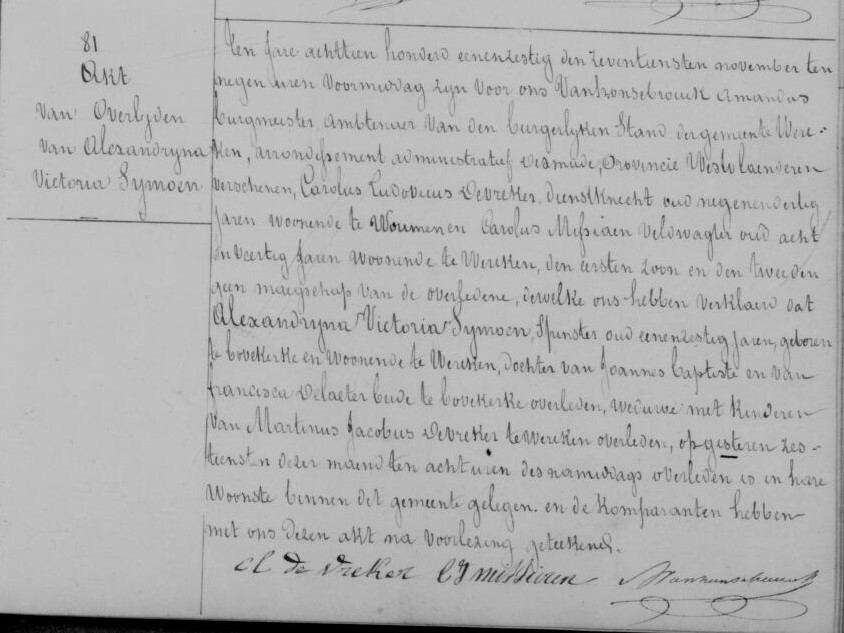 81
Akt
Van Overlyden
Van Alexandryna
Victoria Symoen
Ten jare achttien honderd eenenzestig den zeventiensten november ten
negen uren voormiddag zyn voor ons Vanhonsebrouck Amandus
burgmeister, ambtenaer van den burgerlyken Stand der gemeente Were-
ken, arrondissement administratief Dixmude, Provincie Westvlaenderen
verschenen, Carolus Ludovicus Devreker, dienstknecht oud negenendertig
jaren woonende te Woumen en Carolus Messiaen Veldwagter oud acht
en veertig jaren woonende te Wereken, den eersten zoon en den tweeden
geen maegschap van de overledene, dewelke ons hebben verklaerd dat
Alexandryna Victoria Symoen, Spinster oud eenenzestig jaren, geboren
te bovekerke en woonende te Wereken, dochter van Joannes Baptiste en van
francisca Delaeter beide te bovekerke overleden, weduwe met kinderen
van Martinus Jacobus Devreker te Wereken overleden, op gisteren zes-
tiensten dezer maend ten acht uren des namiddags overleden is in hare
Woonste binnen det gemeente gelegen. en de komparanten hebben
met ons dezen akt na voorlezing geteekend.
cl de vreker CJ missiaen